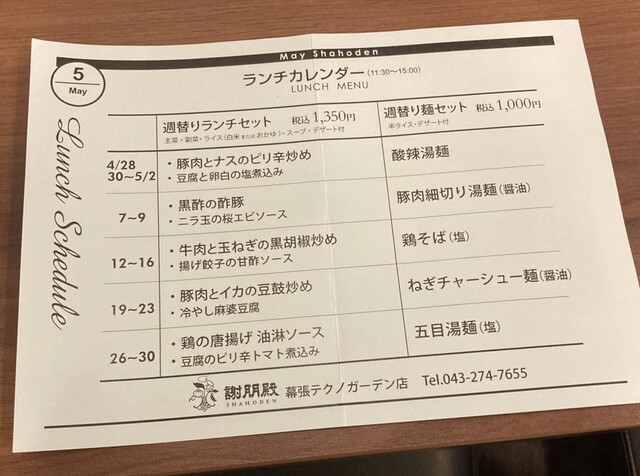 May Shahoden
5
May
ランチカレンダー(11:30～15:00)
LUNCH MENU
Lunch Schedule
週替りランチセット 税込1,350円
主菜・副菜・ライス(白米またはおかゆ)・スープ・デザート付
週替り麺セット 税込1,000円
半ライス・デザート付
4/28
30～5/2
・豚肉とナスのピリ辛炒め
・豆腐と卵白の塩煮込み
酸辣湯麺
7～9
・黒酢の酢豚
・ニラ玉の桜エビソース
豚肉細切り湯麺(醤油)
12～16
・牛肉と玉ねぎの黒胡椒炒め
・揚げ餃子の甘酢ソース
鶏そば(塩)
19～23
・豚肉とイカの豆鼓炒め
・冷やし麻婆豆腐
ねぎチャーシュー麺(醤油)
26～30
・鶏の唐揚げ 油淋ソース
・豆腐のピリ辛トマト煮込み
五目湯麺(塩)
謝朋殿 幕張テクノガーデン店 Tel.043-274-7655
SHAHODEN